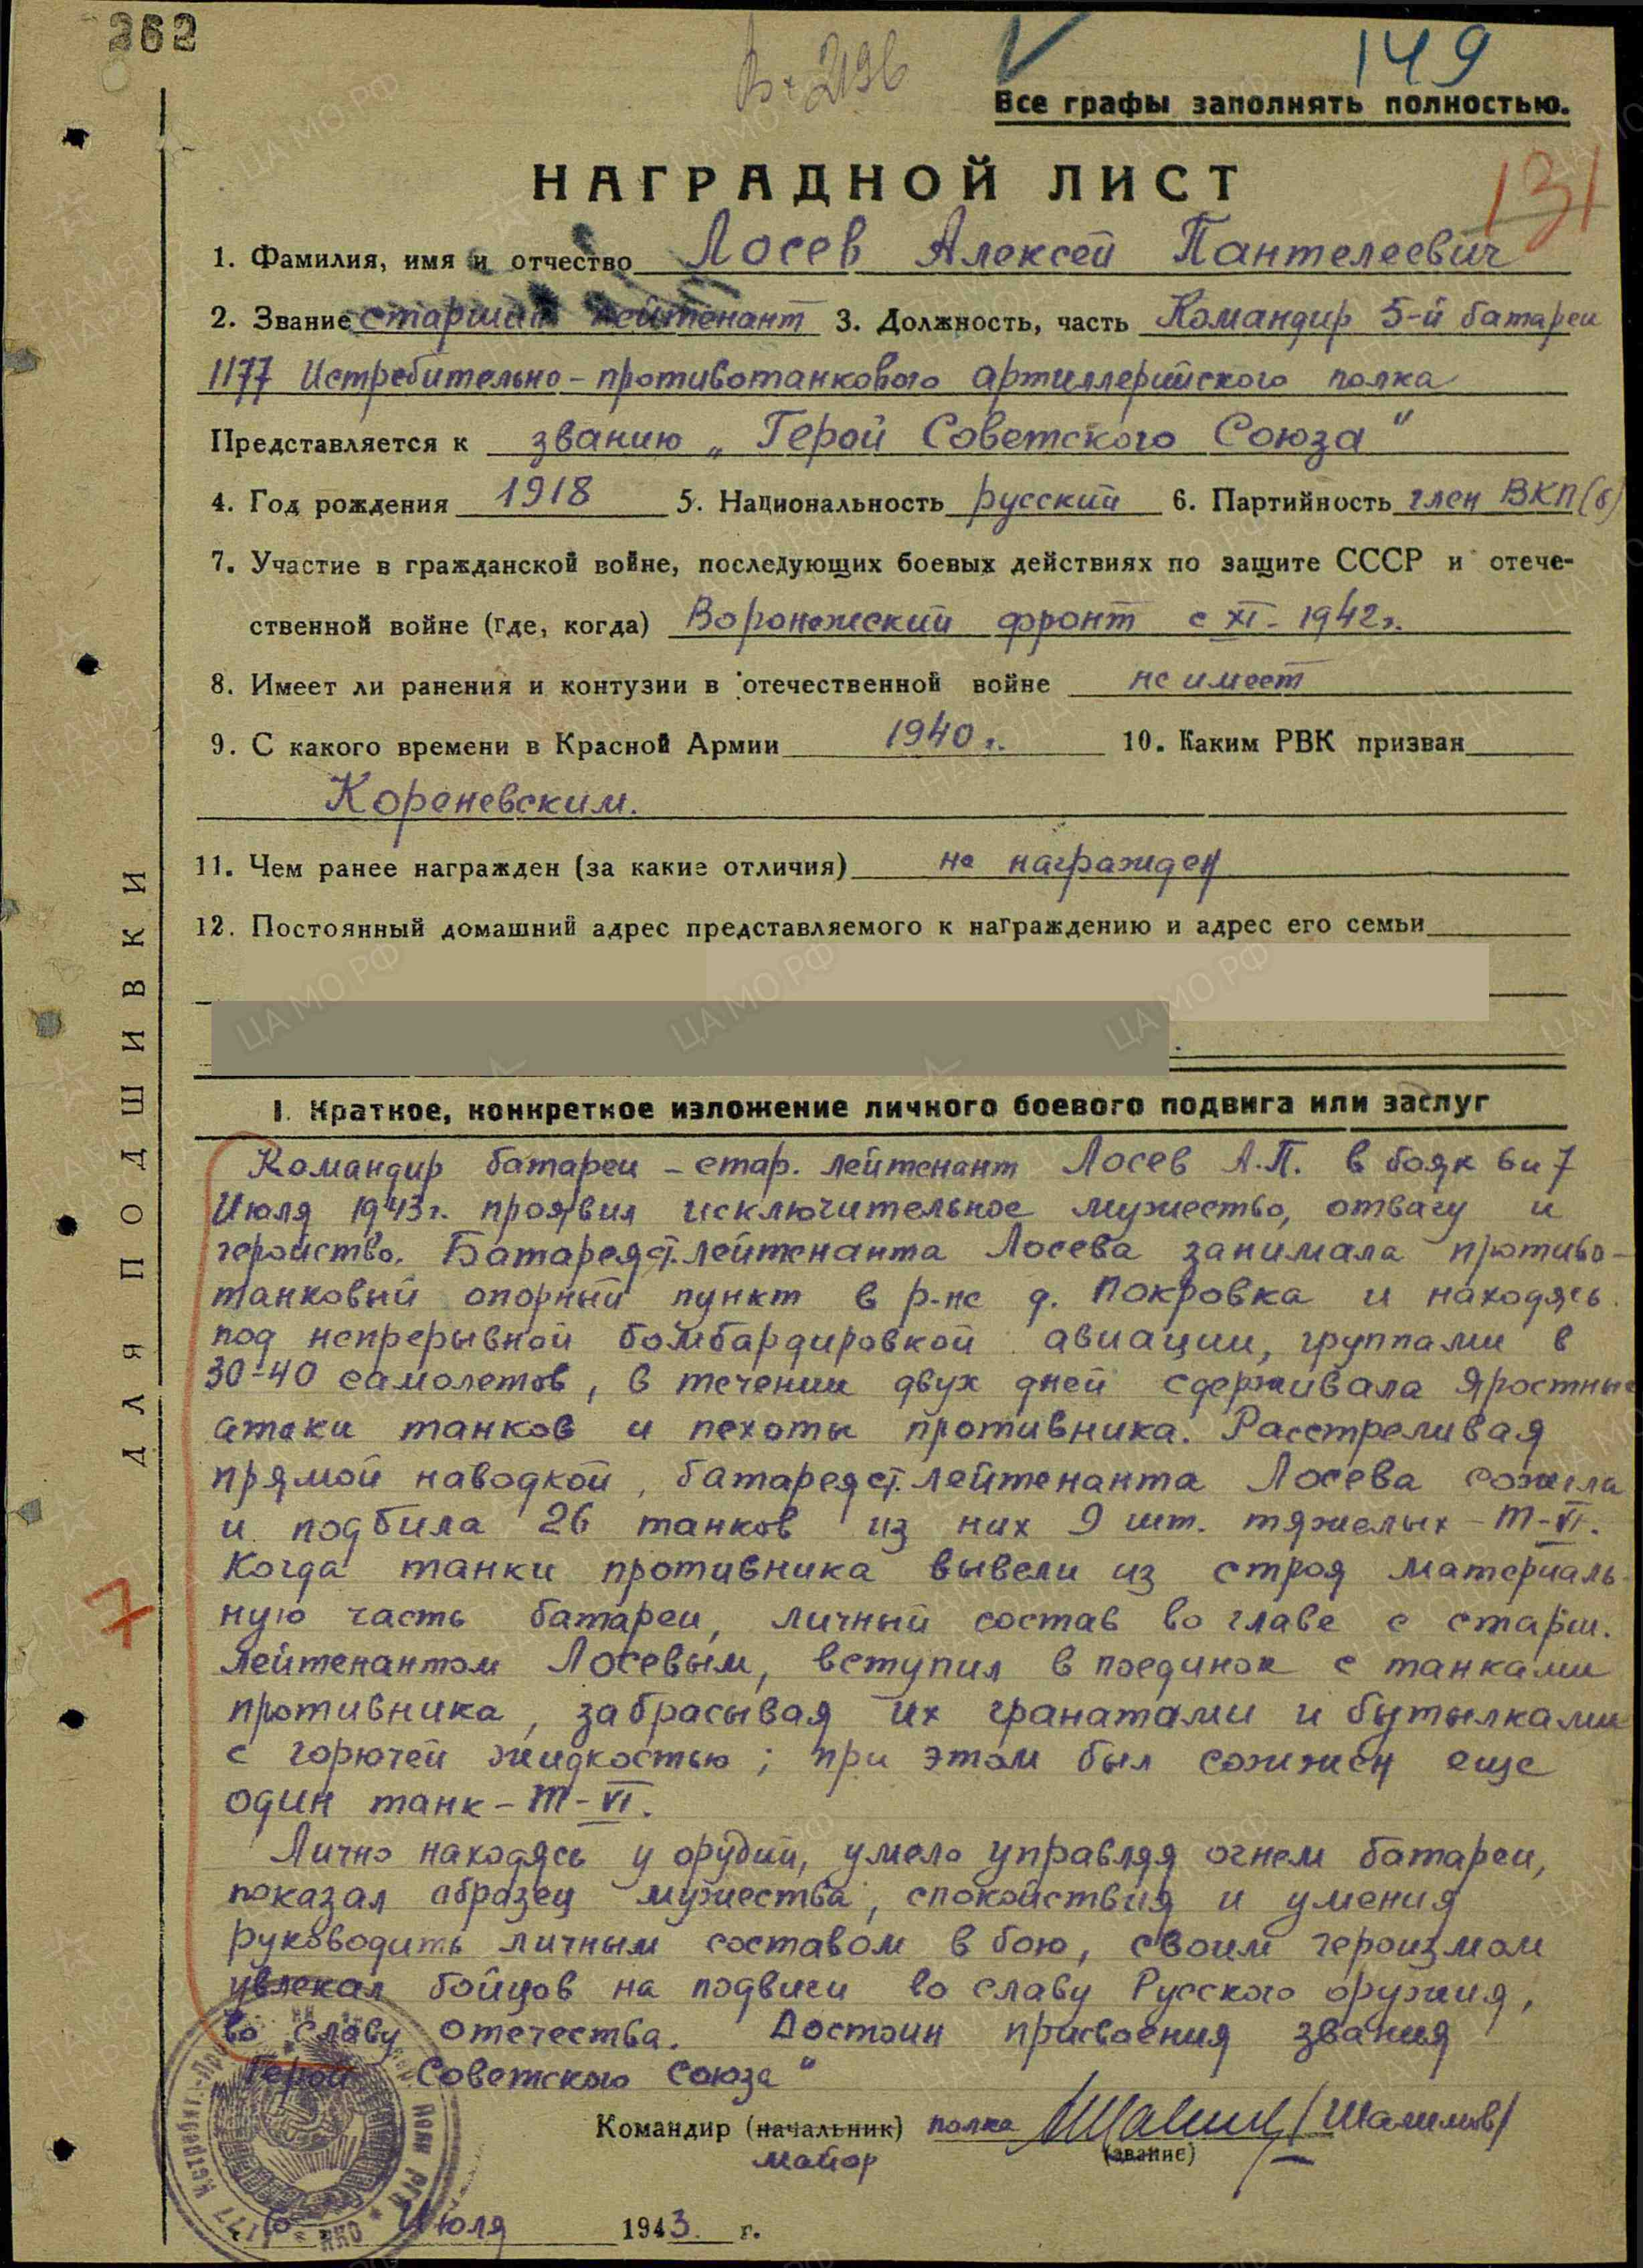 262
149
Все графы заполнять полностью.
131
НАГРАДНОЙ ЛИСТ
1. Фамилия, имя и отчество Лосев Алексей Пантелеевич
2. Звание старший лейтенант 3. Должность, часть Командир 5-й батареи
1177 Истребительно-противотанкового артиллерийского полка
Представляется к званию „Герой Советского Союза"
4. Год рождения 1918 5. Национальность русский 6. Партийность член ВКП(б)
7. Участие в гражданской войне, последующих боевых действиях по защите СССР и отече-
ственной войне (где, когда) Воронежский фронт с XI-1942г.
8. Имеет ли ранения и контузии в отечественной войне не имеет
9. С какого времени в Красной Армии 1940 г. 10. Каким РВК призван
Кореневским.
11. Чем ранее награжден (за какие отличия) не награжден
12. Постоянный домашний адрес представляемого к награждению и адрес его семьи
I. Краткое, конкретное изложение личного боевого подвига или заслуг
Командир батареи - стар. лейтенант Лосев А.П. в боях 6 и 7
Июля 1943г. проявил исключительное мужество, отвагу и
геройство. Батарея ст. лейтенанта Лосева занимала противо-
танковый опорный пункт в р-не д. Покровка и находясь
под непрерывной бомбардировкой авиации, группами в
30-40 самолетов, в течении двух дней сдерживала яростные
атаки танков и пехоты противника. Расстреливая
прямой наводкой, батарея ст. лейтенанта Лосева сожгла
и подбила 26 танков из них 9 шт. тяжелых - Т-VI.
Когда танки противника вывели из строя материаль-
ную часть батареи, личный состав во главе с старш.
лейтенантом Лосевым, вступил в поединок с танками
противника, забрасывая их гранатами и бутылками
с горючей жидкостью; при этом был сожжен еще
один танк - Т-VI.
7
Лично находясь у орудий, умело управляя огнем батареи,
показал образец мужества, спокойствия и умения
руководить личным составом в бою, своим героизмом
увлекал бойцов на подвиги во славу Русского оружия,
во славу отечества. Достоин присвоения звания
„Герой Советского Союза"
Командир (начальник) полка /Шалимов/
майор (звание)
Июля 1943 г.
ДЛЯ ПОДШИВКИ
ЦА МО РФ